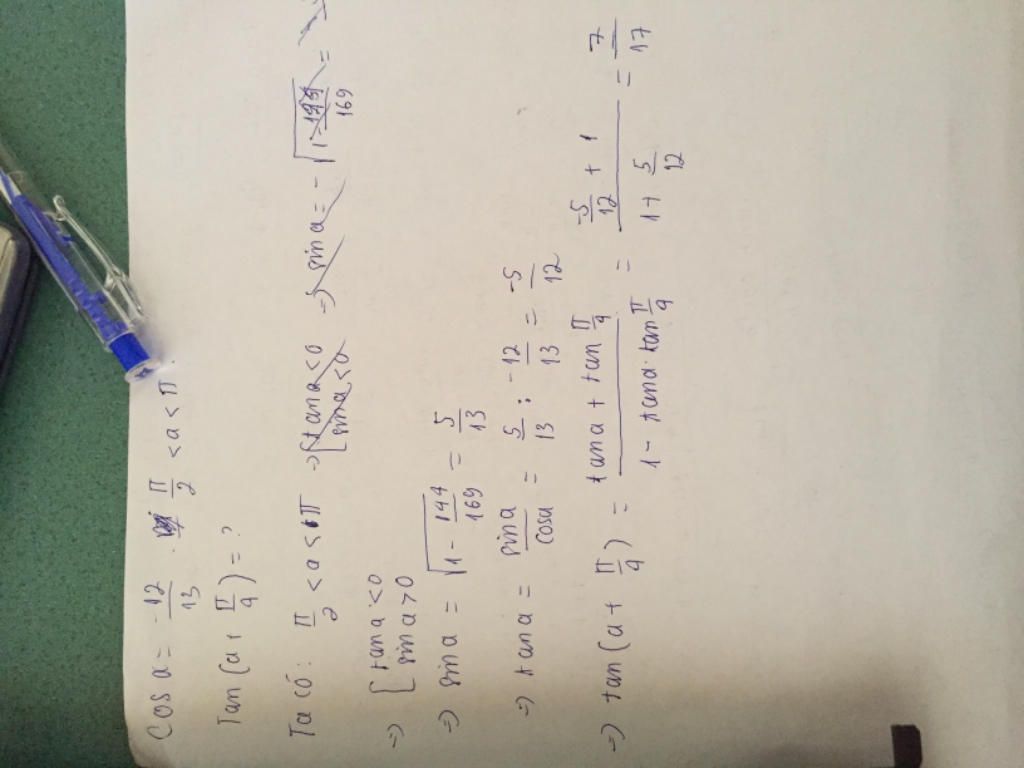 Cos a = -12/13 . π/2 < a < π.
Tan (a + π/4) = ?
Ta có : π/2 < a < π => [tan a < 0 sin a < 0 => sin a = - √(1 - 144/169) =
=> [tan a < 0 sin a > 0
=> sin a = √(1 - 144/169) = 5/13
=> tan a = sin a/cos a = 5/13 : -12/13 = -5/12
=> tan (a + π/4) = (tan a + tan π/4)/(1 - tan a . tan π/4) = (-5/12 + 1)/(1 + 5/12) = 7/17